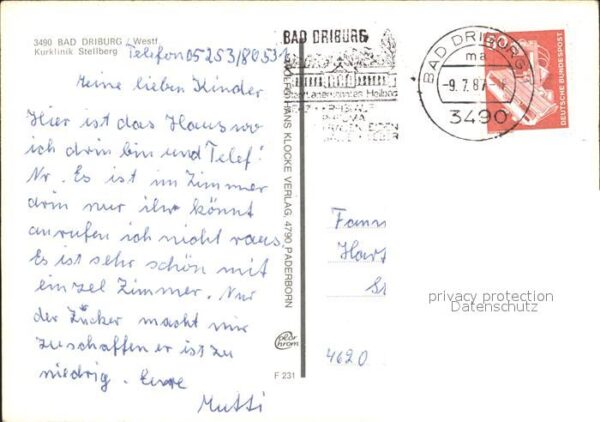 3490 BAD DRIBURG / Westf
Kurklinik Stellberg
Telefon 05253/80531
Meine lieben Kinder
Hier ist das Haus wo
ich drin bin und Telef.
Nr. Es ist im Zimmer
drin nur ihr könnt
anrufen ich nicht raus.
Es ist sehr schön mit
einzel Zimmer. Nur
der Zucker macht mir
zuschaffen er ist zu
niedrig. Eure
Mutti
HANS KLOCKE VERLAG, 4790 PADERBORN
F 231
BAD DRIBURG
BAD DRIBURG
ma
-9.7.87
3490
60
DEUTSCHE BUNDESPOST
Fam
Hart
St
4620
privacy protection
Datenschutz